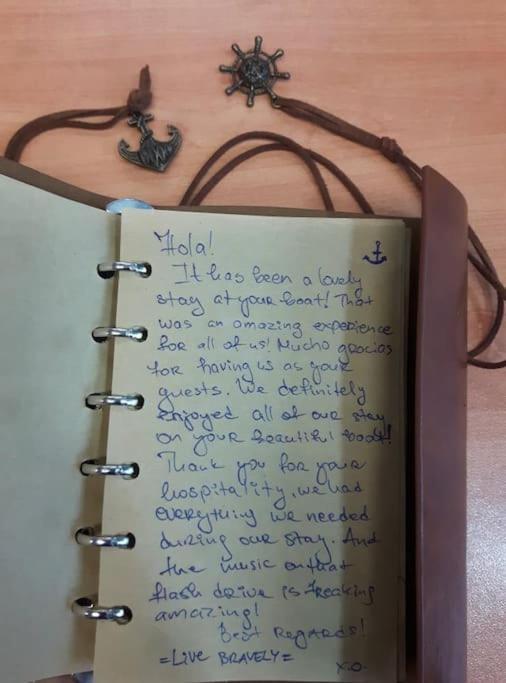 Hola!
It has been a lovely
stay at your boat! That
was an amazing experience
for all of us! Mucho gracias
for having us as your
guests. We definitely
enjoyed all of our stay
on your beautiful boat!
Thank you for your
hospitality, we had
everything we needed
during our stay. And
the music on that
flash drive is freaking
amazing!
Best Regards!
=LIVE BRAVELY=
X.O.